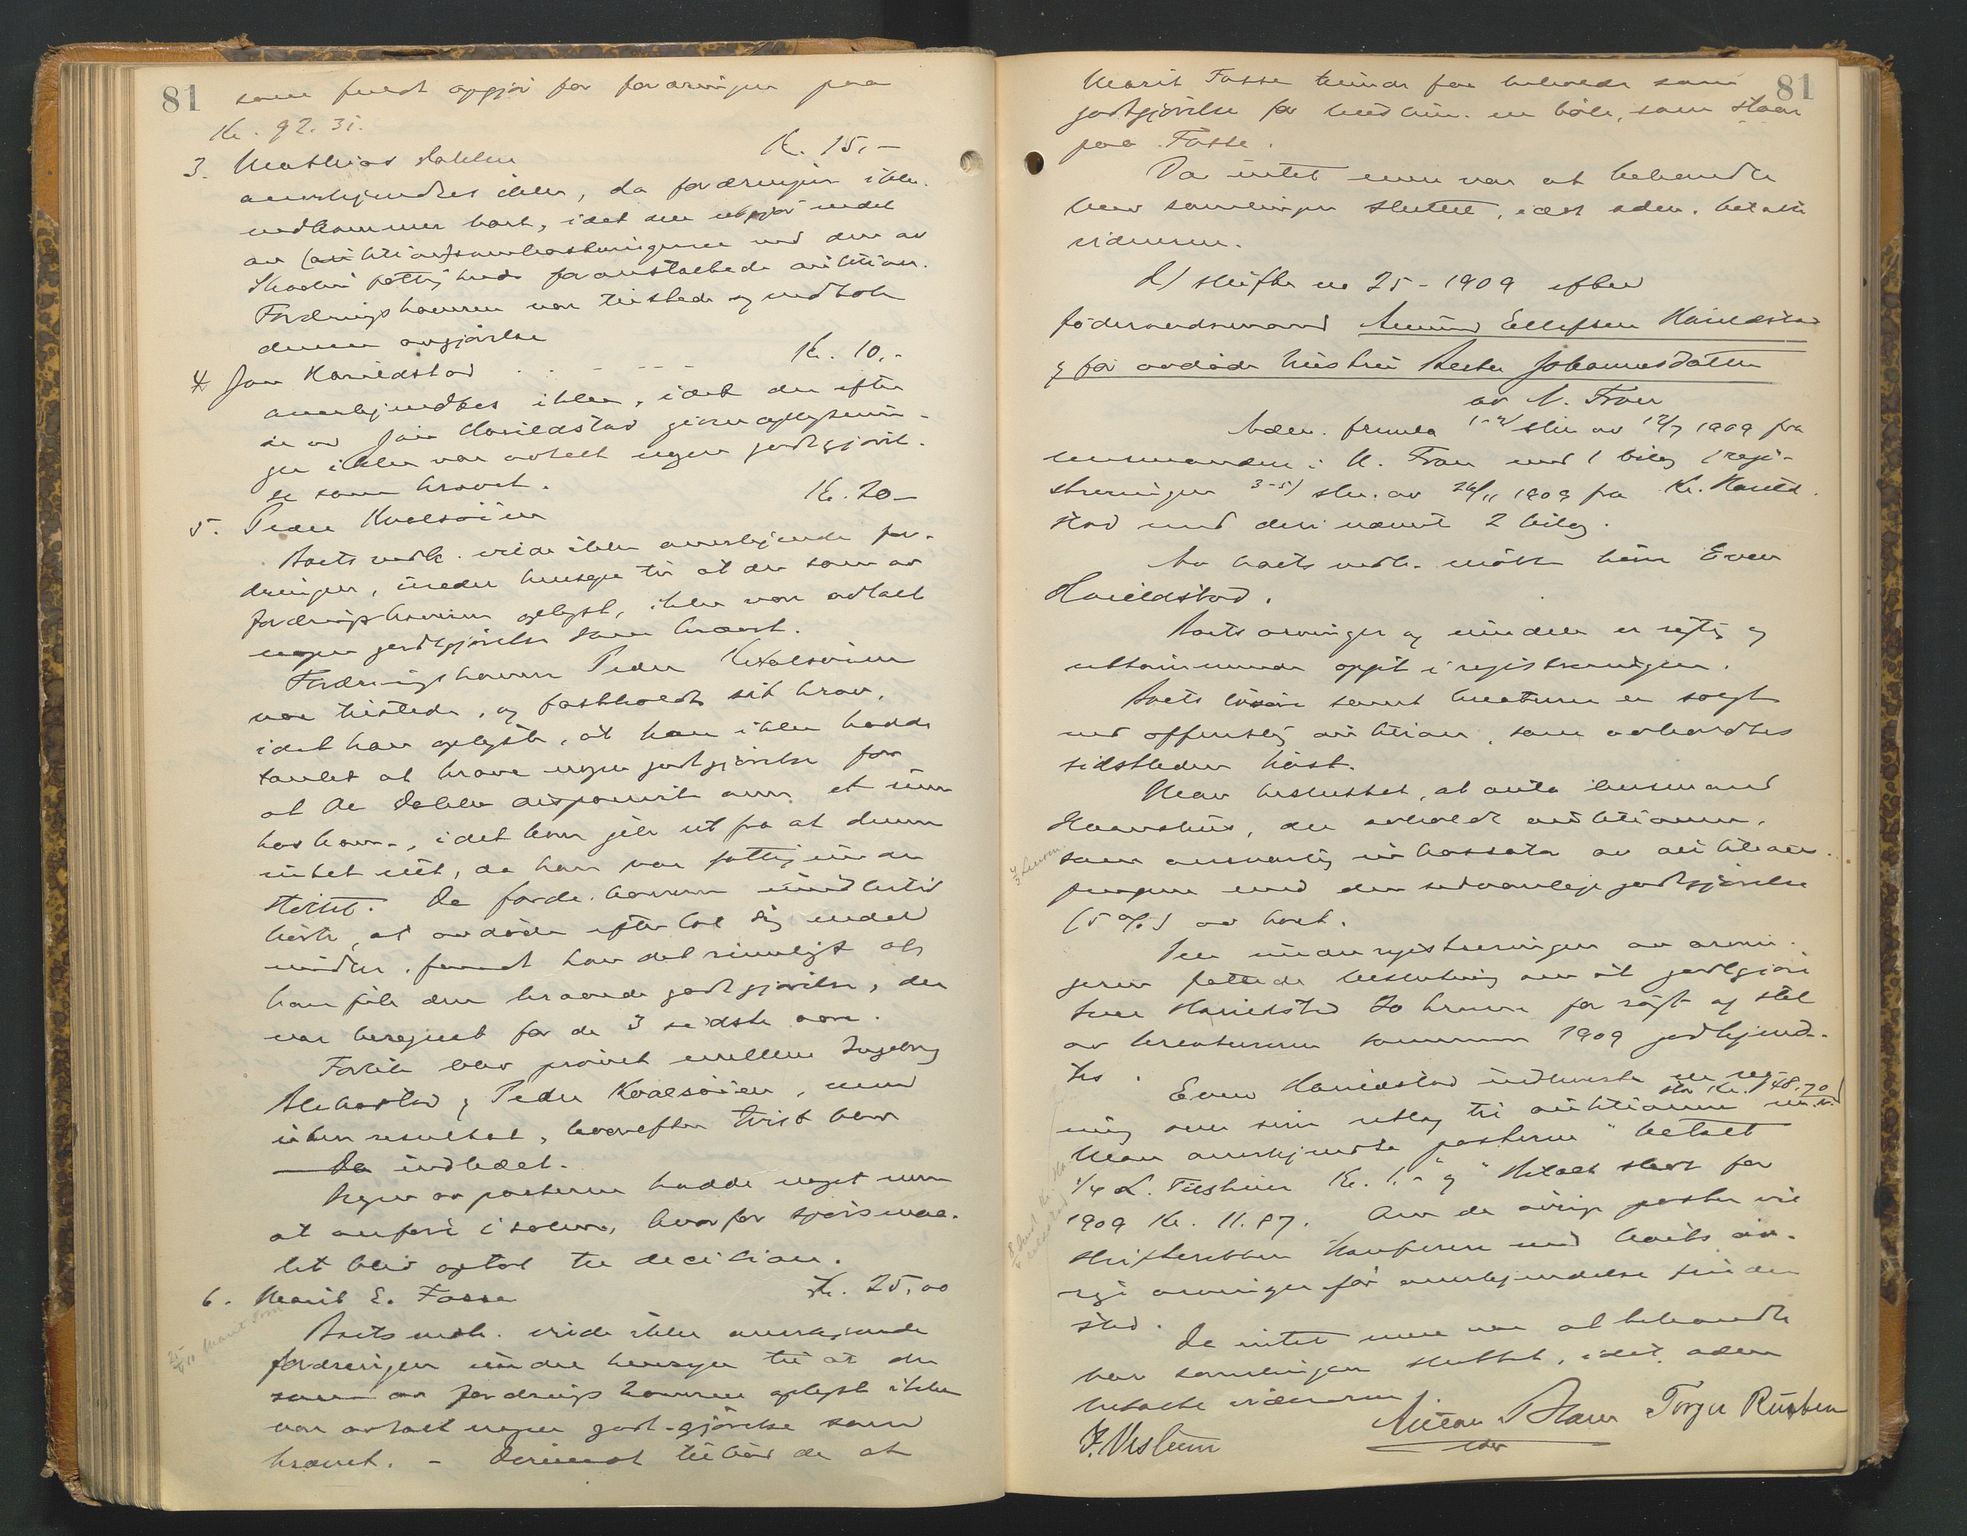 81
som fuldt opgjør for fordringen paa
Kr. 92.35.
3. Mathias Dahlen Kr. 15,-
anerkjendtes ikke, da fordringen ikke
vedkommer boet, idet den utgjør endel
av (auktions)omkostningerne ved den av
Skodin fattigkasse foranstaltede auktion.
Fordringshaveren var tilstede og vedtok
denne avgjørelse
4 Jon Harildstad . . - - - Kr. 10,-
anerkjendtes ikke, idet der efter
de av Jon Harildstad givne oplysnin-
ger ikke var avtalt nogen godtgjørel-
se som krævet.
5. Peder Kvalsøien Kr. 20-
Boets vedk. vilde ikke anerkjende for-
dringen, under hensyn til at der som av
fordringshaveren oplyst, ikke var avtalt
nogen godtgjørelse som krævet.
Fordringshaveren Peder Kvalsøien
var tilstede, og fastholdt sit krav,
idet han oplyste, at han ikke hadde
tænkt at kræve nogen godtgjørelse for
at de disponerte over et rum
hos ham, idet han gik ut fra at denne
intet eiet, da han var fattigunder
støttet. Da fordr.haveren imidlertid
hørte, at avdøde efterlot sig endel
midler, fandt han det rimeligt at
han fik den krævede godtgjørelse, der
var beregnet for de 3 sidste aar.
Forlik blev prøvet mellem Ingeborg
og Peder Kvalsøien, men
uten resultat, hvorefter tvist blev
indledet.
Ingen av parterne hadde noget mere
at anføre i saken, hvorfor spørsmaa-
let blir optat til decision.
6. Marit E. Fosse Kr. 25,00
Boets vedk. vilde ikke anerkjende
fordringen under hensyn til at der
som av fordringshaveren oplyst ikke
var avtalt nogen godt-gjørelse som
krævet. - Derimot tilbød de at
81
Marit Fosse kunde faa beholde som
godtgjørelse for en, som staar
paa Fosse.
Da intet mere var at behandle
blev samlingen sluttet, idet adm. betalte
vidnerne.
2) skifte no 25 - 1909 efter
føderaadsmand Amund Ellefsen Harildstad
og før avdøde hustru Johannesdatter
av N. Fron
Adm. fremla 1-2) skr. av 12/7 1909 fra
lensmanden i N. Fron med 1 bilag (regi-
streringen 3-5) skr. av 26/11 1909 fra Kr. Harild
stad med deri nævnt 2 bilag.
Av boets vedk. møtte kun Even
Harildstad.
Boets arvinger og midler er rigtig og
uttømmende opgit i registreringen.
Boets løsøre samt kreaturer er solgt
ved offentlig auktion, som avholdtes
sidstleden høst.
Man besluttet, at anta lensmand
der avholdt auktionen,
som ansvarlig inkassator av auktions-
pengene med den sedvanlige godtgjørelse
(5 %) av boet.
Den under registreringen av arvin-
gerne fattede beslutning om at godtgjøre
Even Harildstad 20 kroner for røgt og stel
av kreaturerne sommeren 1909 godkjend-
tes.
Even Harildstad indleverte en reg-
stor Kr. 148.70
ning over sine utlæg til auktionen m.v.
Man anerkjendte posterne "betalt
1/4 L. Kr. 1.-" og "Betalt skat for
1909 Kr. 11.87. Om de øvrige poster vil
skifteretten konferere med boets øv-
rige arvinger før anerkjendelse finder
sted.
Da intet mere var at behandle
blev samlingen sluttet, idet adm
betalte vidnerne.
Torger Rusten